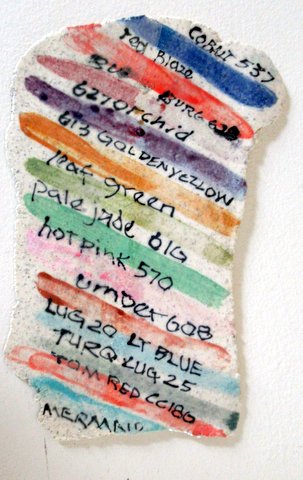 COBALT 537
red Blaze
BURG
627 orchid
613 GOLDENYELLOW
leaf green
pale jade 616
hot pink 570
umber 608
LUG20 LT BLUE
TURQ LUG 25
TOM RED CC186
MERMAID